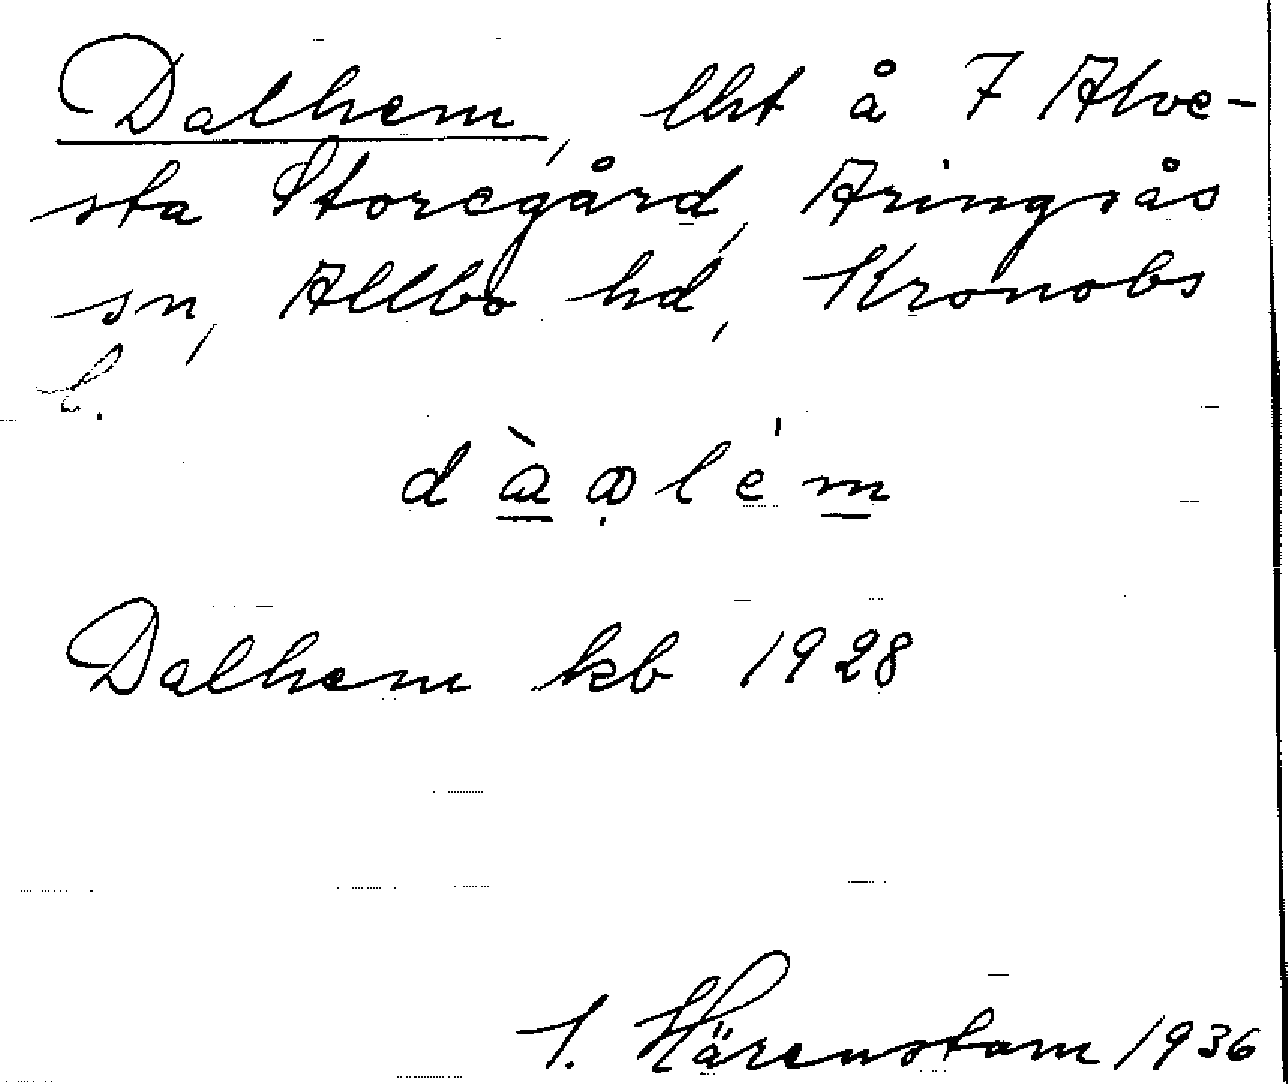 Dalhem, lht å 7 Alve-
sta Storegård, Aringsås
sn, Allbo hd, Kronobs
l.
dàɷlém
Dalhem kb 1928
S. Härenstam 1936